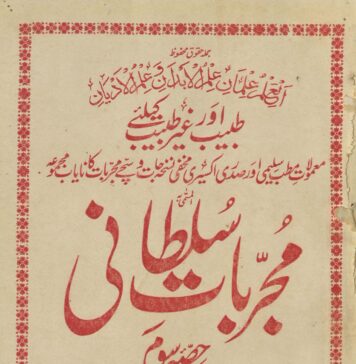 جملہ حقوق محفوظ
اَلْعِلْمُ عِلْمَانِ عِلْمُ الْاَبْدَانِ وَعِلْمُ الْاَدْیَانِ
طبیب اور غیر طبیب کیلئے
معمولات مطب سلیمی اور صدری اکسیری مخفی نسخہ جات و سچے مجربات کا نایاب مجموعہ
المسمّٰی بہ
مُجرّبات سُلطانی
حصّہ سوم